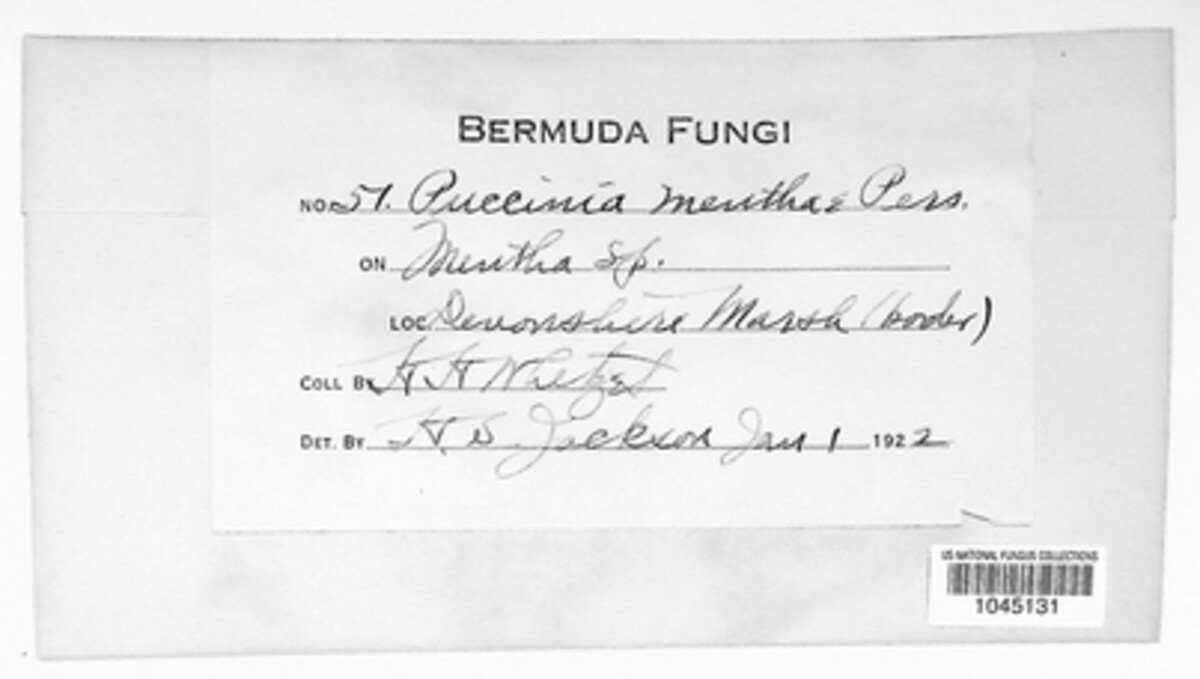 BERMUDA FUNGI
NO. 57. Puccinia menthae Pers.
ON Mentha sp.
LOC Devonshire Marsh (border)
COLL BY H H Whetzel
DET. BY H. S. Jackson Jan 1 1922
US NATIONAL FUNGUS COLLECTIONS
1045131